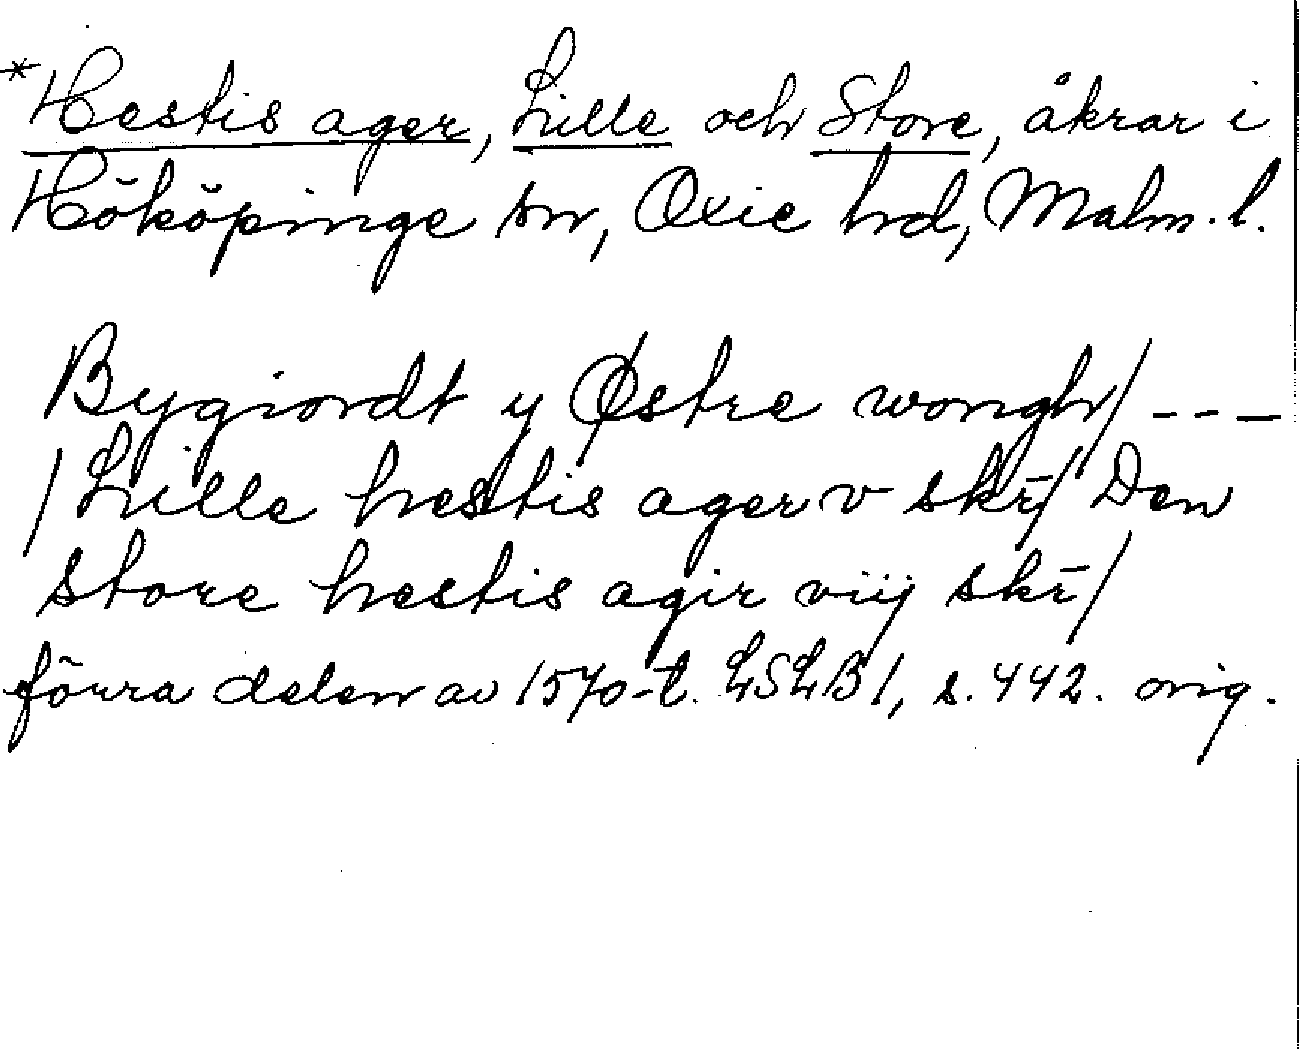 *Hestis ager, Lille och Store, åkrar i
Hököpinge sn, Oxie hd, Malm. l.
Bygiordt y Østre wongh/ ---
/Lille hestis ager v skr̄/ Den
store hestis agir viij skr̄/
förra delen av 1570-t. LSLB 1, s. 442. orig.